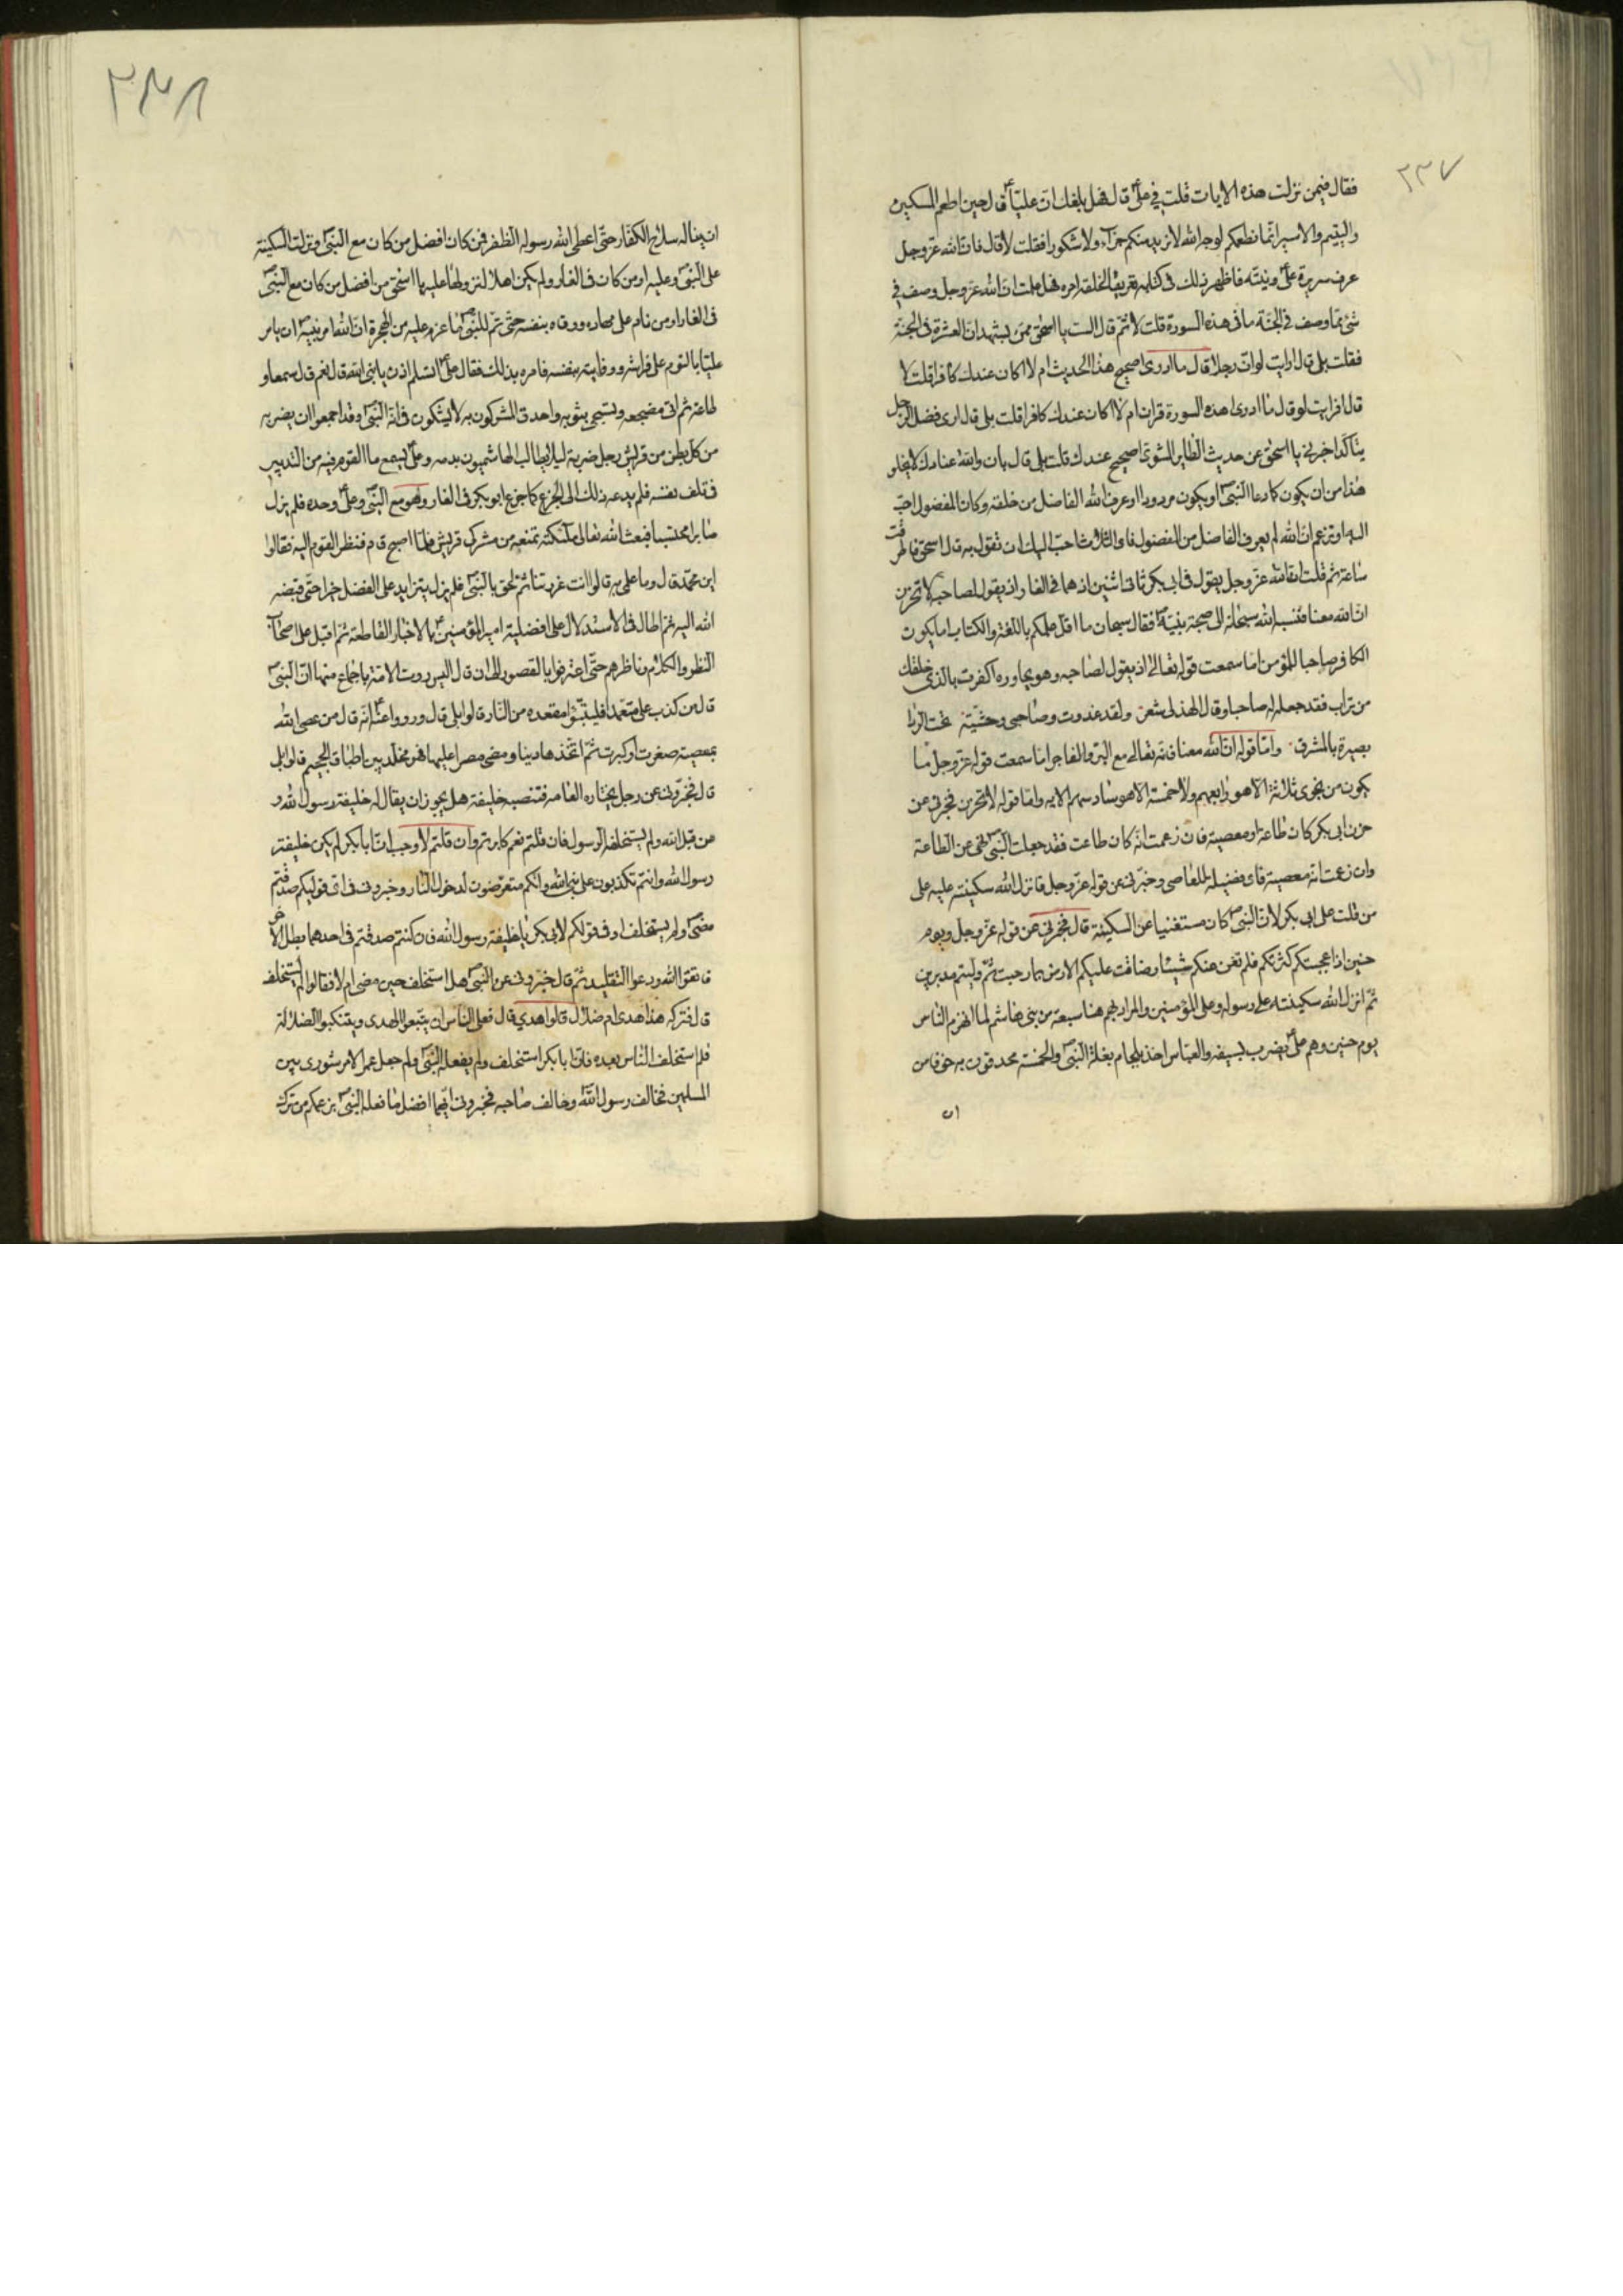 ٢٣٧
فقال فيمن نزلت هذه الايات قلت في علىؑ قال فهل بلغك انّ عليّاؑ قال حين اطعم المسكين
واليتيم والاسير انّما نطعمكم لوجه الله لا نريد منكم جزآء ولا شكورا فقلت لا قال فانّ الله عزّ وجل
عرف سريرة علىؑ ونيته فاظهر ذلك فى كتابه تعريفا لخلقه امره فهل علمت انّ الله عزّ وجل وصف في
شئ مما وصف في الجنّة ما فى هذه السورة قلت لا ثم قال الست يا اسحق ممن يشهد ان العشرة فى الجنّة
فقلت بلى قال ارايت لو انّ رجلا قال ما ادرى اصحيح هذا الحديث ام لا اكان عندك كافرا قلت لا
قال افرايت لو قال ما ادرى اهذه السورة قران ام لا اكان عندك كافرا قلت بلى قال ارى فضل الرّجل
يتاكّد اخبرنى يا اسحق عن حديث الطاير المشوىّ اصحيح عندك قلت بلى قال بان والله عنادك لا يخلو
هذا من ان يكون كما دعا النبىّؐ او يكون مردودا او عرف الله الفاضل من خلقه وكان المفضول احبّ
اليه او تزعم انّ الله لم يعرف الفاضل من المفضول فاى الثلاث احبّ اليك ان تقول به قال اسحق فاطرقت
ساعة ثم قلت ان الله عزّ وجل يقول فى ابى بكر ثانى اثنين اذ هما في الغار اذ يقول لصاحبه لا تحزن
انّ الله معنا فنسبه الله سبحانه الى صحبة نبيّهؐ فقال سبحان ما اقلّ علمكم باللّغة والكتاب اما يكون
الكافر صاحبا للمؤمن اما سمعت قوله تعالى اذ يقول لصاحبه وهو يحاوره اكفرت بالذى خلقك
من تراب فقد جعله له صاحبا وقال الهذلى شعر ولقد غدوت وصاحبى وحشيّة تحت الردا
بصيرة بالمشرق وامّا قوله انّ الله معنا فانّه تعالى مع البرّ والفاجر اما سمعت قوله عزّ وجل ما
يكون من نجوى ثلاثة الا هو رابعهم ولا خمسة الا هو سادسهم الايه وامّا قوله لا تحزن فخبرنى عن
حزن ابى بكر كان طاعة او معصية فان زعمت انّه كان طاعت فقد جعلت النبىّؐ نهى عن الطاعة
وان زعمت انّه معصية فاى فضيلة للعاصى وخبّرنى عن قوله عزّ وجل فانزل الله سكينته عليه على
من قلت على ابى بكر لانّ النبىّؐ كان مستغنيا عن السكينة قال فخبرنى عن قوله عزّ وجل ويوم
حنين اذا عجبتكم كثرتكم فلم تغن عنكم شيئا وضاقت عليكم الارض بما رحبت ثمّ وليتم مدبرين
ثمّ انزل الله سكينته على رسوله وعلى المؤمنين والمراد بهم هنا سبعة من بنى هاشم لما انهزم الناس
يوم حنين وهم علىؑ يضرب بسيفه والعبّاس اخذ بلجام بغلة النبىّؐ والخمسة محدقون به خوفا من
ان
٢٣٨
ان يناله سلاح الكفّار حتّى اعطى الله رسوله الظفر فمن كان افضل من كان مع النبىّؐ ونزلت السكينة
على النبىّؐ وعليه او من كان فى الغار ولم يكن اهلا لنزولها عليه يا اسحق من افضل من كان مع النبىّؐ
فى الغار او من نام على مهاده ووقاه بنفسه حتّى تمّ للنبىّؐ ما عزم عليه من الهجرة انّ الله امر نبيهؐ ان يامر
عليّا بالنوم على فراشه ووقايته بنفسه فامره بذلك فقال علىؑ اتسلم اذن يا نبى الله قال نعم قال سمعا و
طاعة ثم اتى مضجعه وتسجى بثوبه واحدق المشركون به لا يشكون فى انّه النبىّؐ وقد اجمعوا ان يضربه
من كلّ بطن من قريش رجل ضربة ليلا يطالب الهاشميون بدمه وعلىؑ يسمع ما القوم فيه من التدبير
فى تلف نفسه فلم يدعه ذلك الى الجزع كما جزع ابو بكر فى الغار وهو مع النبىّؐ وعلىؑ وحده فلم يزل
صابرا محتسبا فبعث الله تعالى ملآئكته تمنعه من مشركى قريش فلمّا اصبح قام فنظر القوم اليه فقالوا
اين محمّد قال وما علمى به قالوا انت غررتنا ثمّ لحق بالنبىّؐ فلم يزل يتزايد على الفضل خيرا حتّى قبضه
الله اليه ثم اطال فى الاستدلال على افضلية امير المؤمنينؑ بالاخبار القاطعة ثمّ اقبل على اصحاب
النظر والكلام وناظرهم حتّى اعترفوا بالقصور الى ان قال اليس روت الامّة باجماع منها انّ النبىّؐ
قال من كذب علىّ متعمّدا فليتبوّء مقعده من النّار قالوا بلى قال ورووا عنهؑ انّه قال من عصى الله
بمعصية صغرت او كبرت ثمّ اتّخذها دينا ومضى مصرا عليها فهو مخلّد بين اطباق الجحيم قالوا بلى
قال فخبّرونى عن رجل يختاره العامه فتنصبه خليفة هل يجوز ان يقال له خليفة رسول الله و
من قبل الله ولم يستخلفه الرسول فان قلتم نعم كابرتم وان قلتم لا وجب انّ ابابكر لم يكن خليفة
رسول الله وانتم تكذبون على نبى الله وانّكم متعرّضون لدخول النّار وخبرونى فى اىّ قوليكم صدقتم
مضىؐ ولم يستخلف او فى قولكم لابى بكر يا خليفة رسول الله فان كنتم صدقتم فى احدهما بطل الآخر
فاتقوا الله ودعوا التّقليد ثمّ قال خبّرونى عن النبىّؐ هل استخلف حين مضى ام لا فقالوا لم يستخلف
قال فتركه هذا هدى ام ضلال قالوا هدى قال فعلى النّاس ان يتّبعوا الهدى ويتنكبوا الضلالة
فلم استخلف النّاس بعده فانّ ابابكر استخلف ولم يفعله النبىّؐ ولم جعل عمر الامر شورى بين
المسلمين فخالف رسول الله وخالف صاحبه فخبرونى ايّهما افضل ما فعله النبىّؐ بزعمكم من ترك